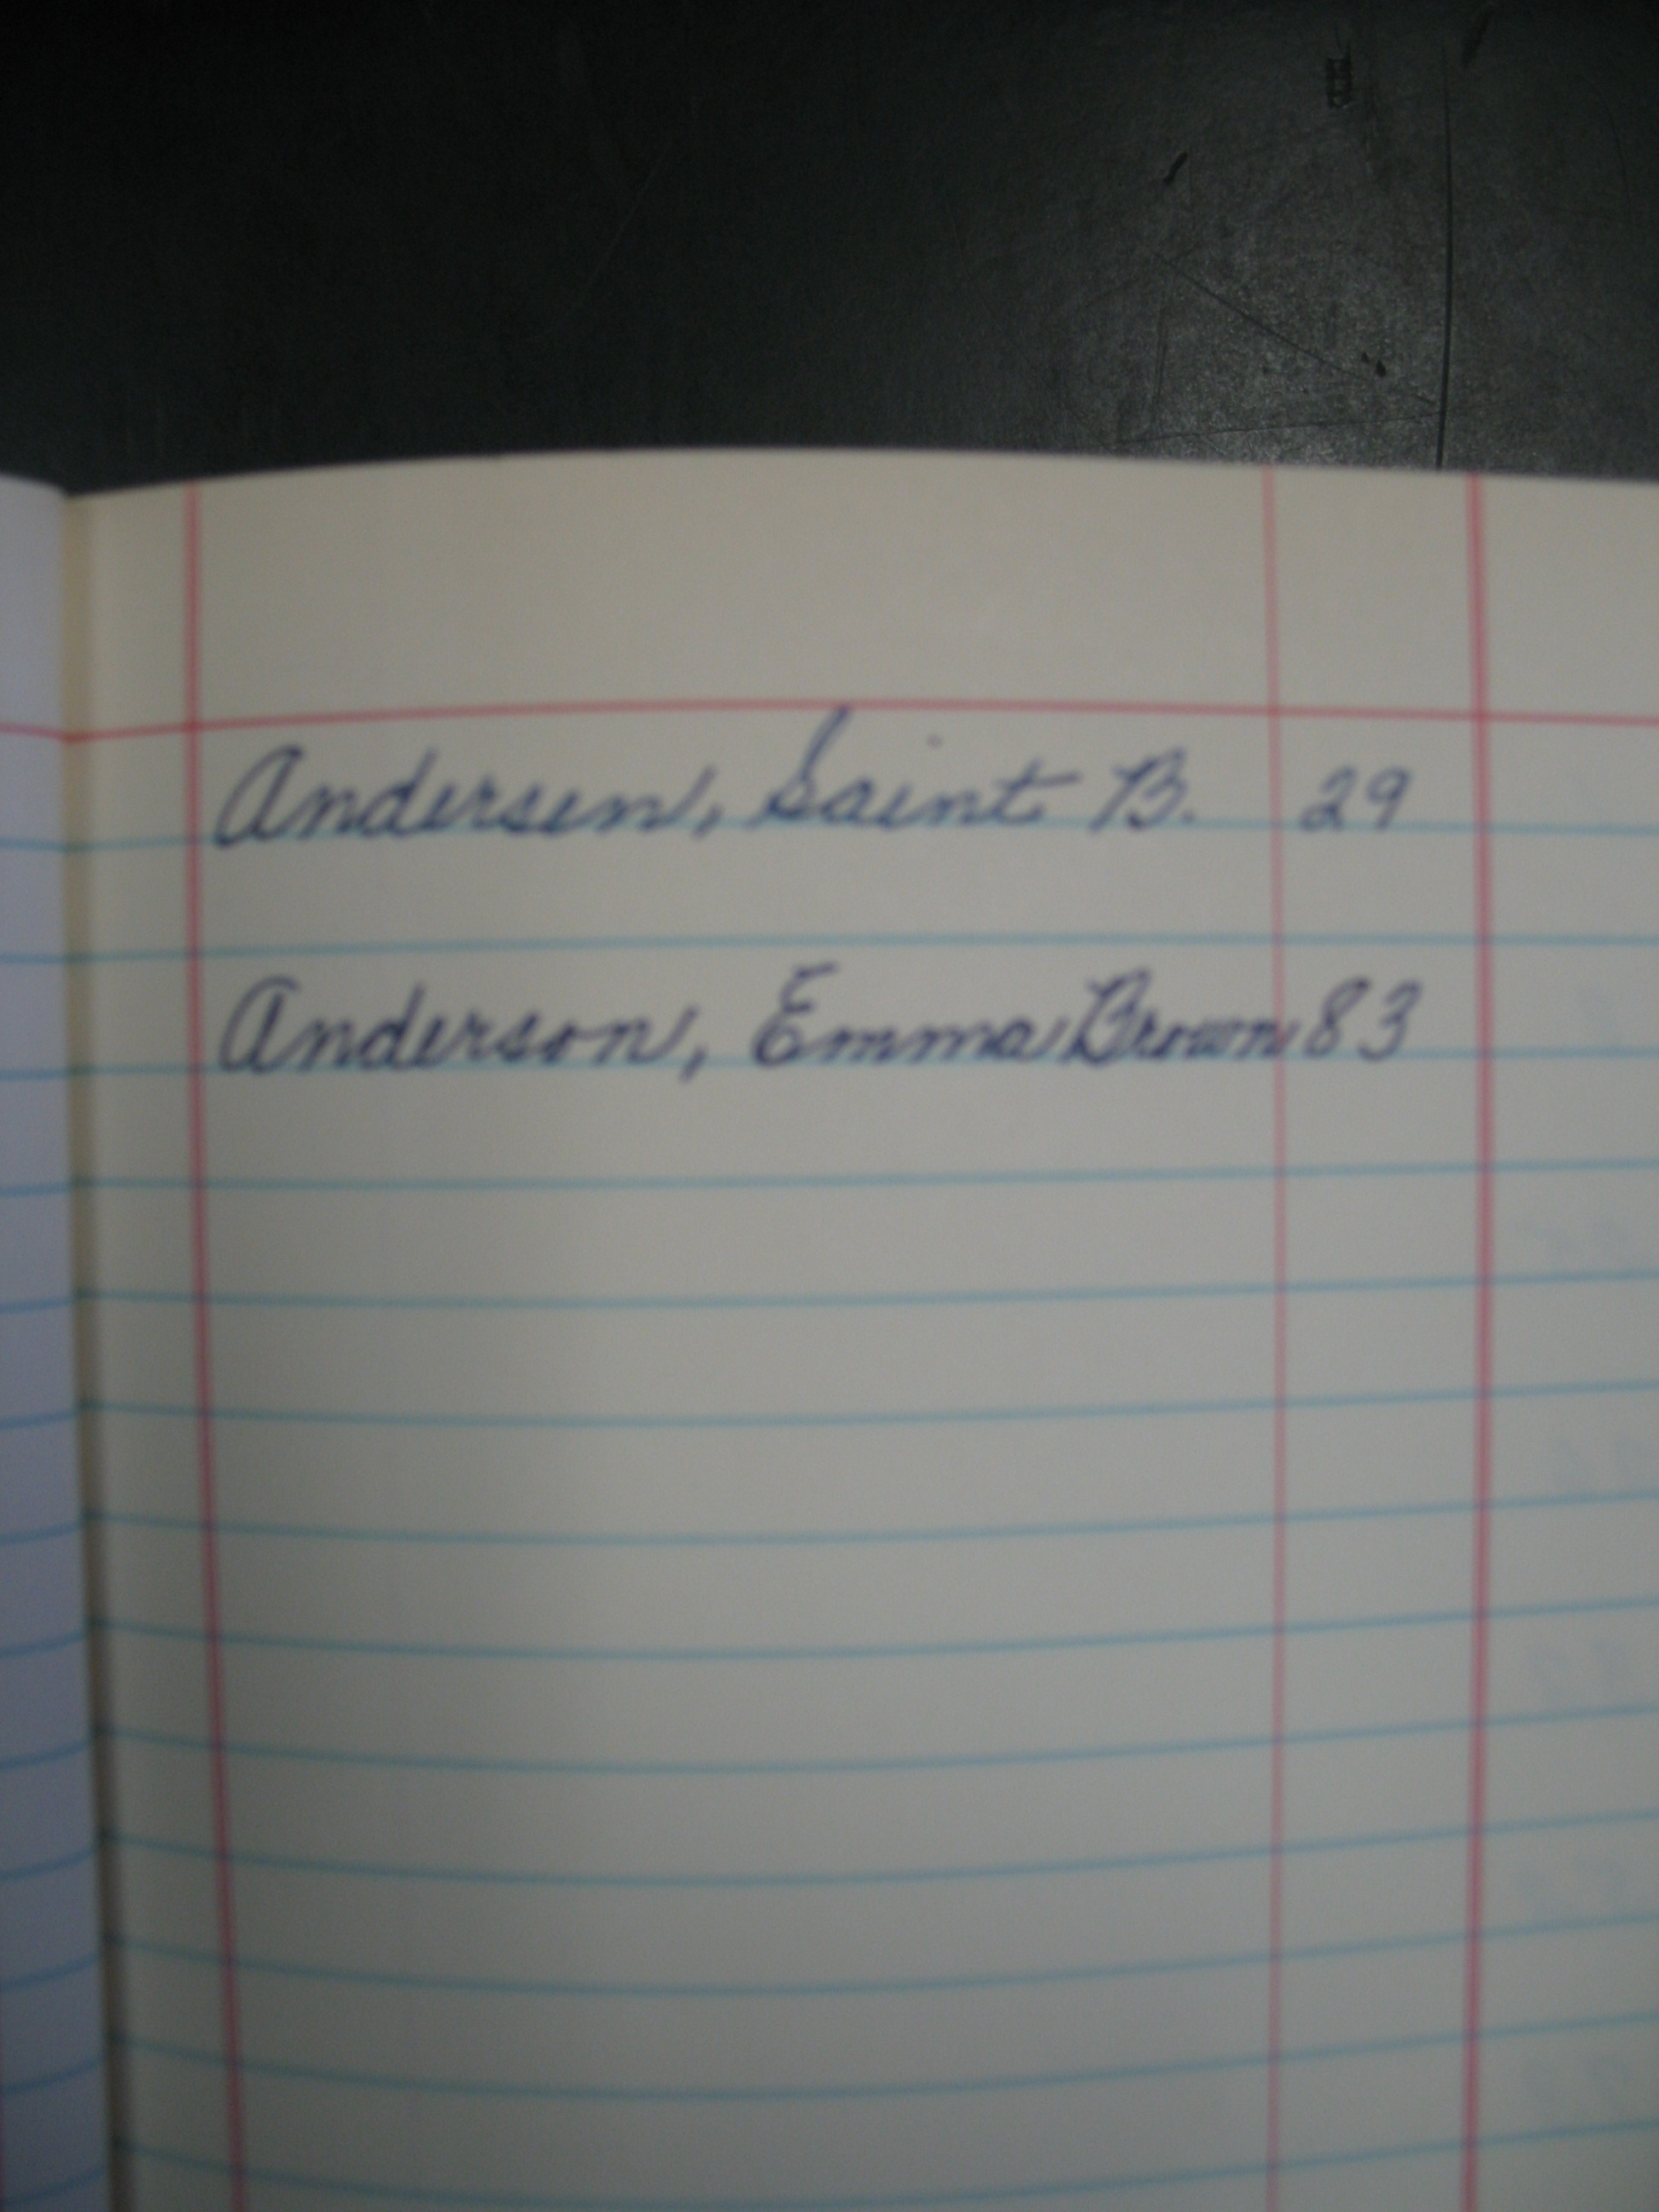 Andersen, Saint B. 29
Anderson, Emma Brown 83